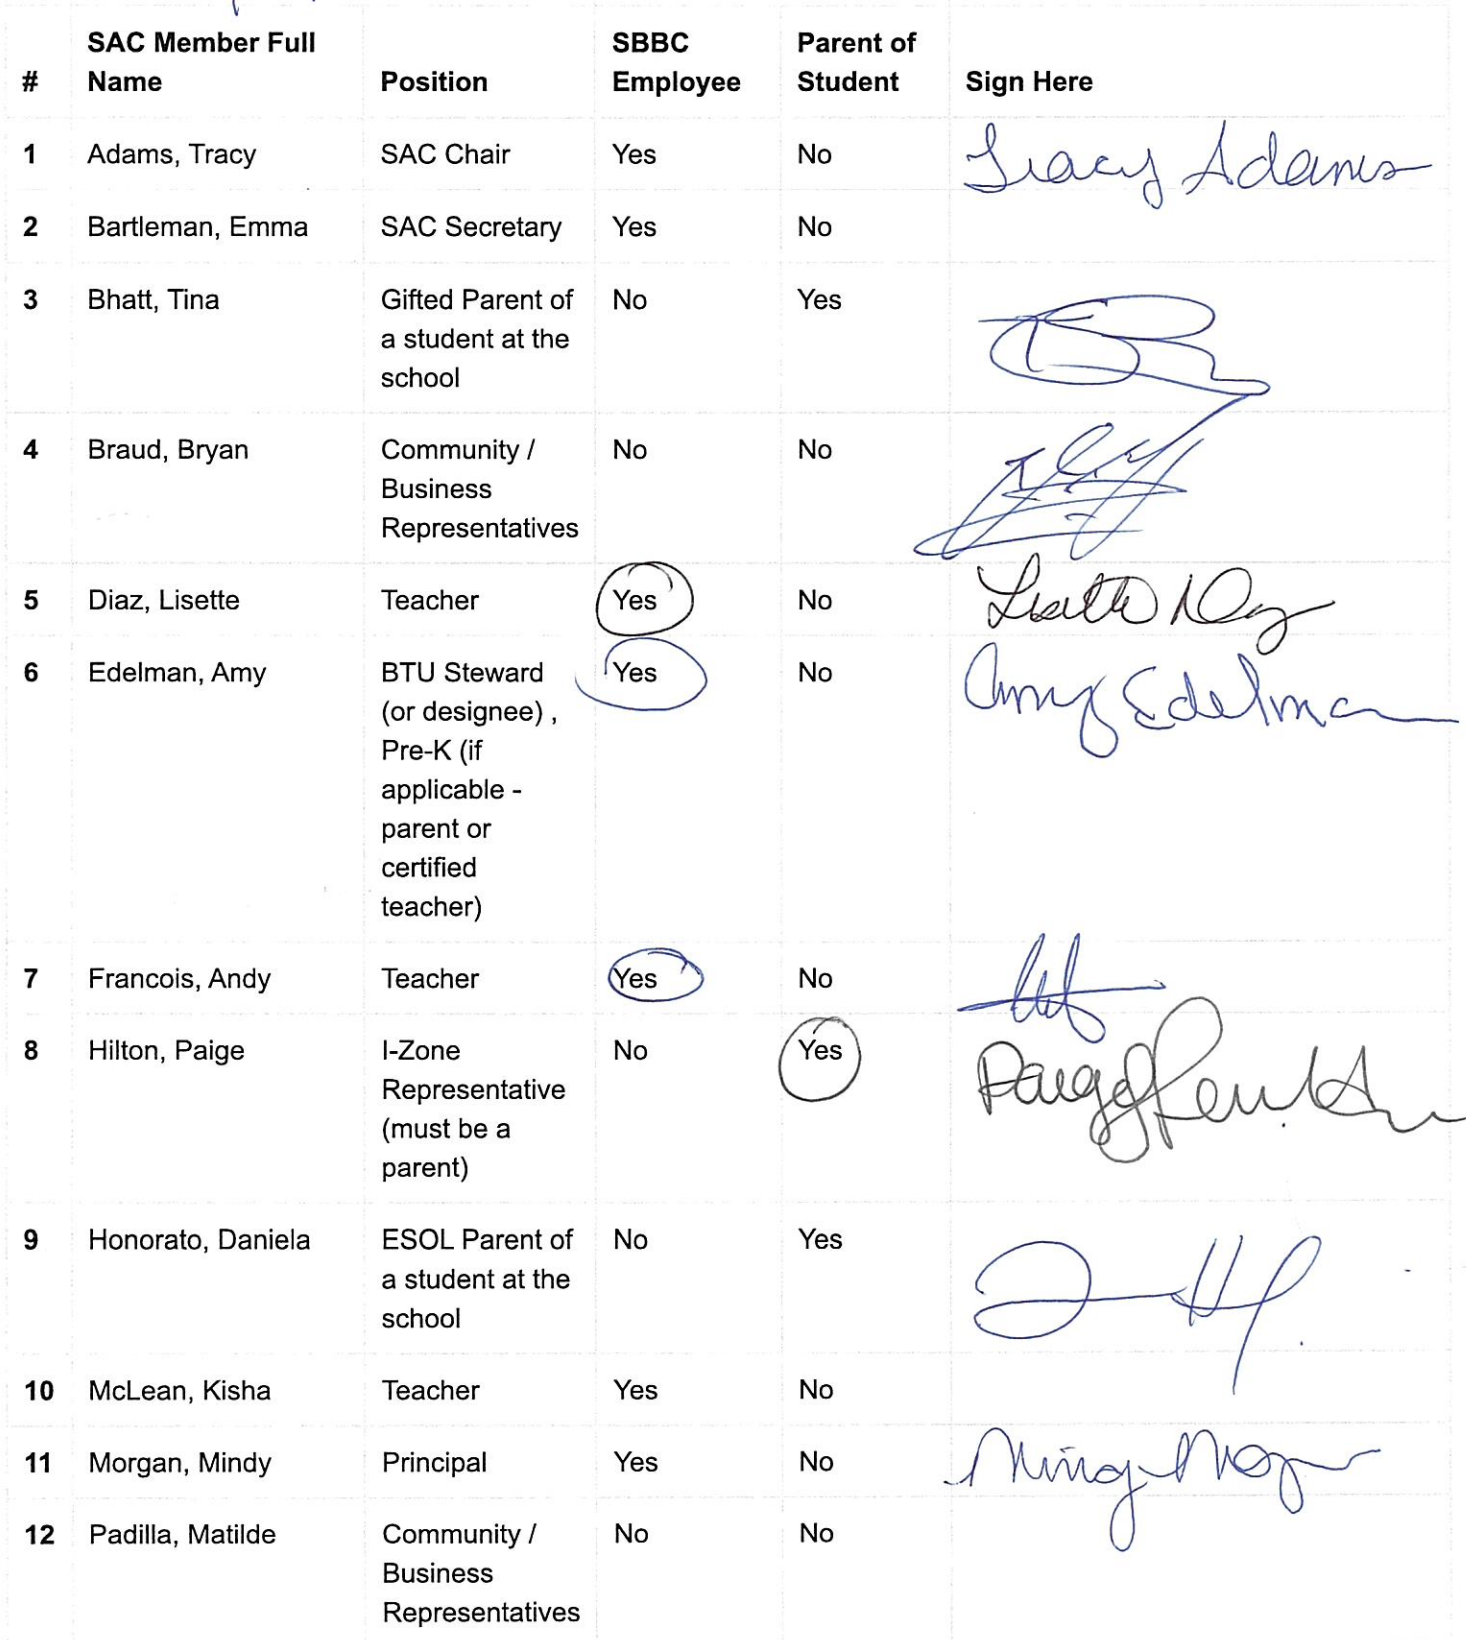 SAC Member Full SBBC Parent of
# Name Position Employee Student Sign Here
1 Adams, Tracy SAC Chair Yes No Tracy Adams
2 Bartleman, Emma SAC Secretary Yes No
3 Bhatt, Tina Gifted Parent of No Yes
a student at the
school
4 Braud, Bryan Community / No No
Business
Representatives
5 Diaz, Lisette Teacher Yes No Lisette Diaz
6 Edelman, Amy BTU Steward Yes No Amy Edelman
(or designee) ,
Pre-K (if
applicable -
parent or
certified
teacher)
7 Francois, Andy Teacher Yes No
8 Hilton, Paige I-Zone No Yes Paige
Representative
(must be a
parent)
9 Honorato, Daniela ESOL Parent of No Yes
a student at the
school
10 McLean, Kisha Teacher Yes No
11 Morgan, Mindy Principal Yes No Mindy Morgan
12 Padilla, Matilde Community / No No
Business
Representatives